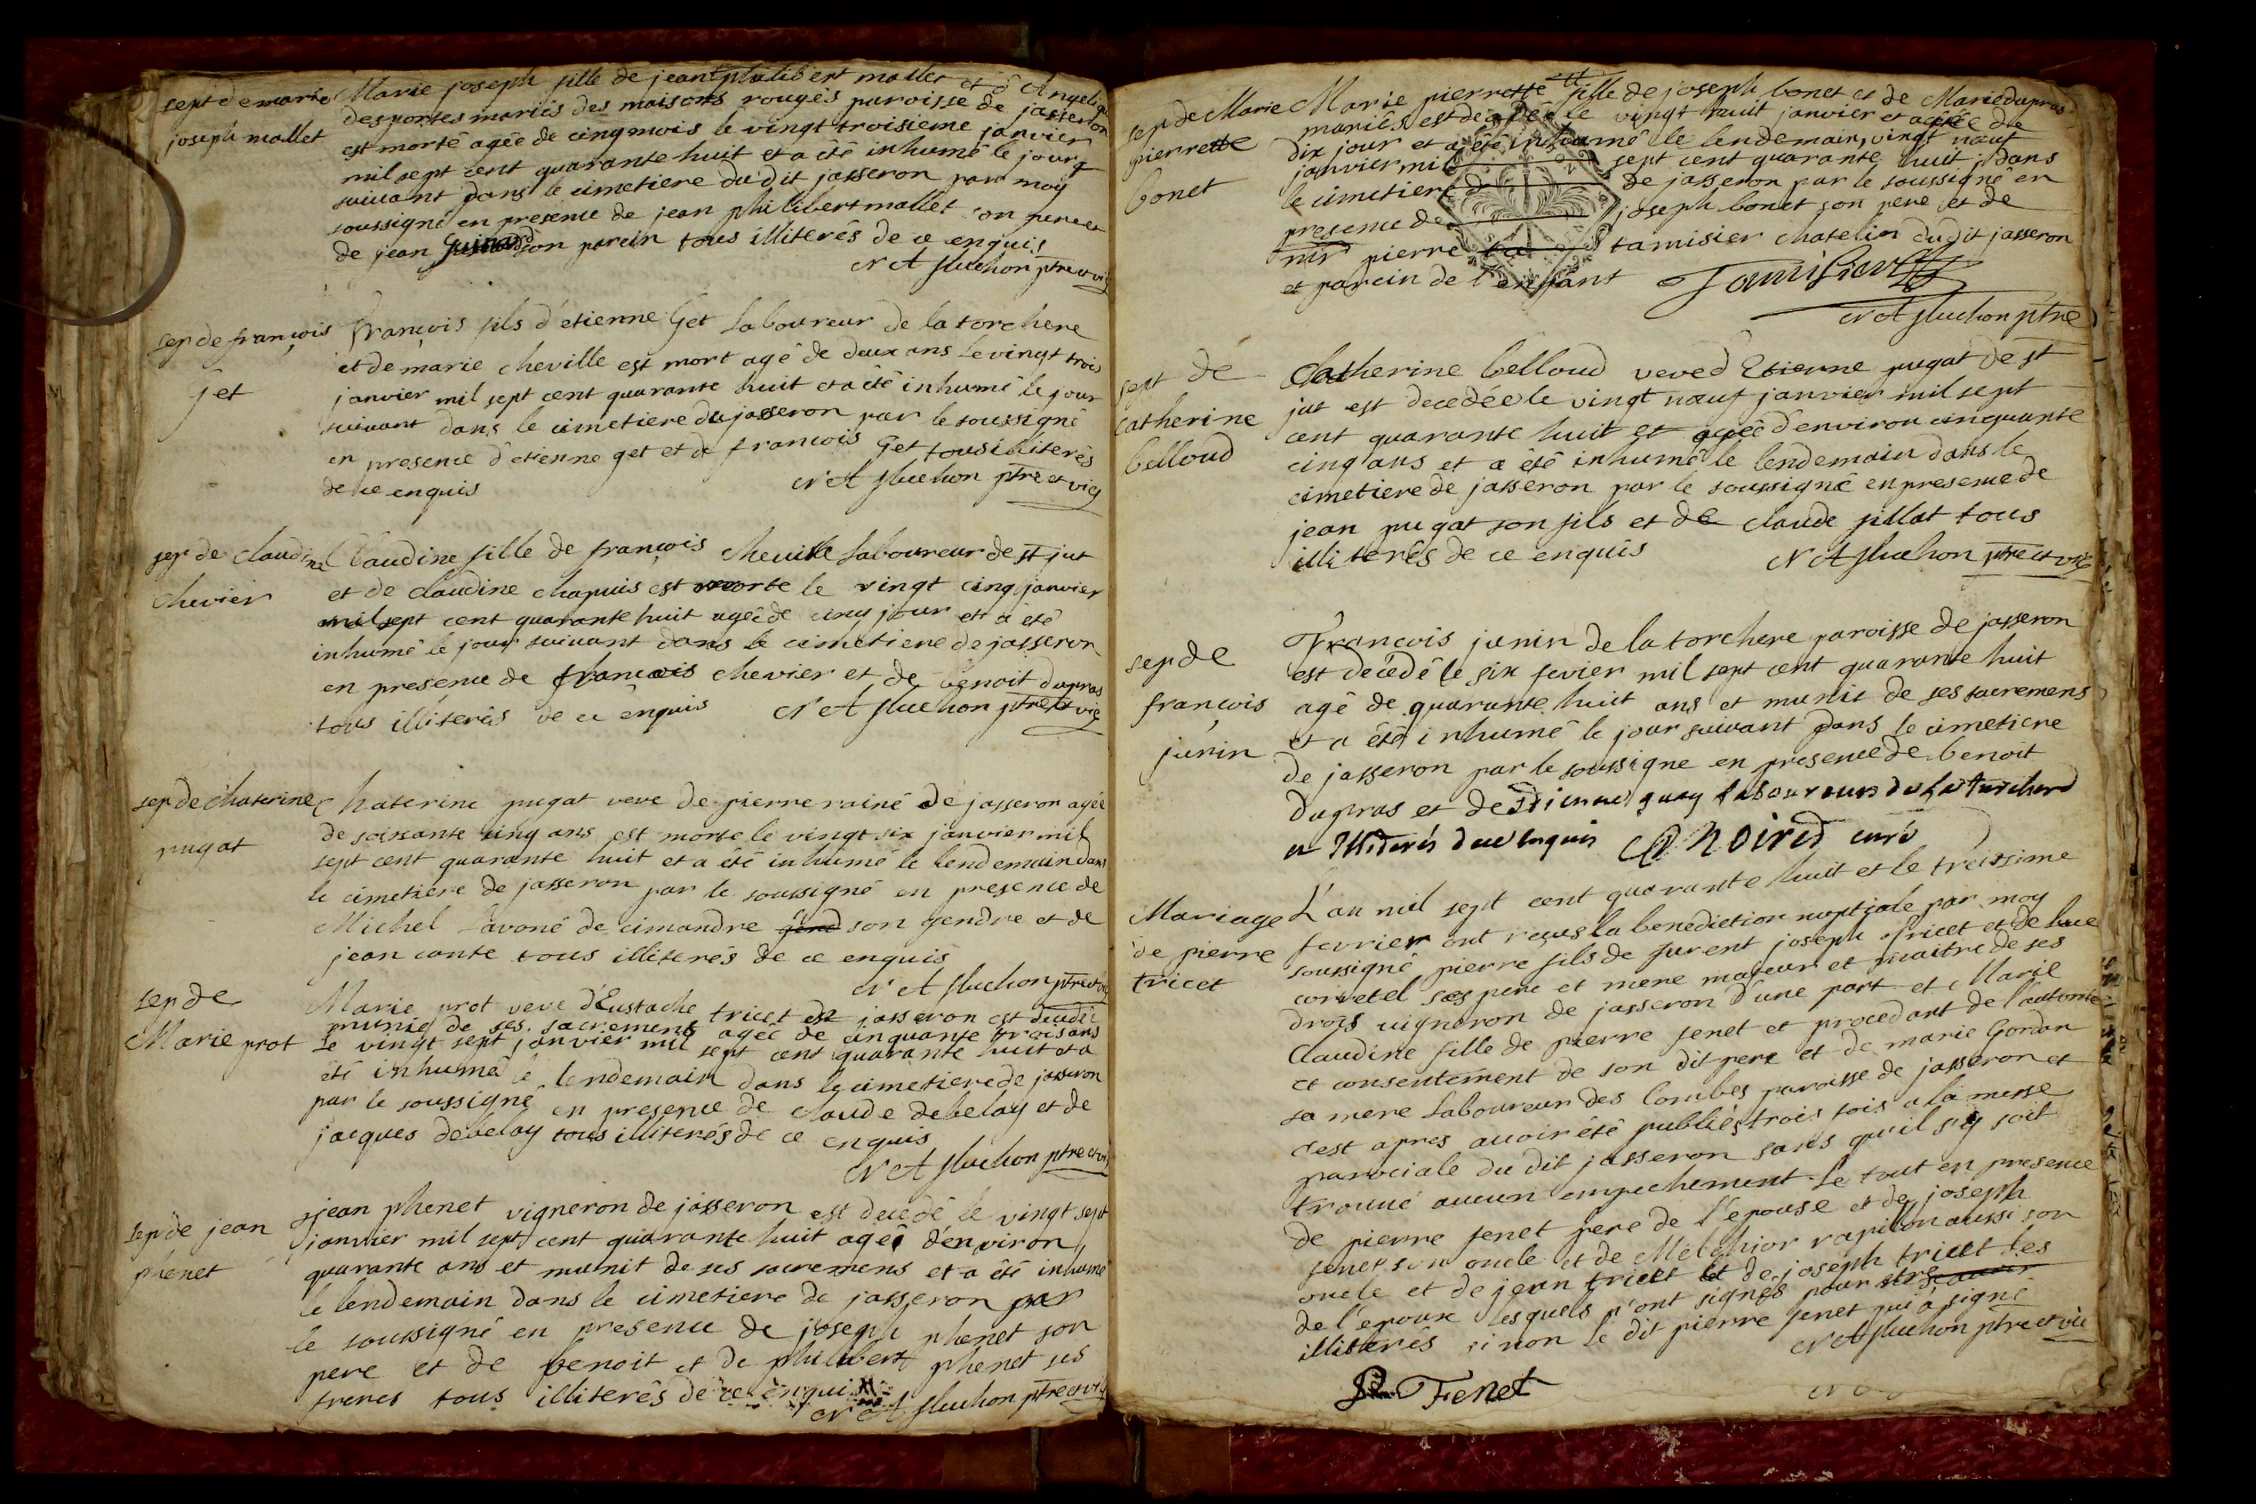 sept de marie
joseph mallet
Marie joseph fille de jean philibert mallet et d'Angelique
desportes mariés des maisons rouges paroisse de jasseron
est morte agée de cinq mois le vingt troisieme janvier
mil sept cent quarante huit et a été inhumé le jour
suivant dans le cimetiere du dit jasseron par moy
soussigné en presence de jean philibert mallet son pere et
de jean son parein tous illiterés de ce enquis
N A fluchon ptre et vic
sep de françois
jet
françois fils d'etienne get laboureur de la torchere
et de marie cheville est mort agé de deux ans le vingt trois
janvier mil sept cent quarante huit et a été inhumé le jour
suivant dans le cimetiere du jasseron par le soussigné
en presence d'etienne get et de francois get tous illiterés
de ce enquis N A fluchon ptre et vic
sep de claudine
chevier
Claudine fille de françois cheville laboureur de st jut
et de claudine chapuis est morte le vingt cinq janvier
mil sept cent quarante huit agée de cinq jour et a été
inhumé le jour suivant dans le cimetiere de jasseron
en presence de francois chevier et de benoit dupras
tous illiterés de ce enquis N A fluchon ptre et vic
sep de chaterine
pugat
Chaterine pugat veve de pierre rainé de jasseron agée
de soissante cinq ans est morte le vingt six janvier mil
sept cent quarante huit et a été inhumé le lendemain dans
le cimetiere de jasseron par le soussigné en presence de
Michel Savoné de cimandre gend son gendre et de
jean conte tous illiterés de ce enquis
N A fluchon ptre et vic
sep de
Marie prot
Marie prot veve d'Eustache tricet de jasseron est decedée
munie de ses sacremens agée de cinquante trois ans
le vingt sept janvier mil sept cent quarante huit et a
été inhumé le lendemain dans le cimetiere de jasseron
par le soussigné en presence de claude debelay et de
jacques debelay tous illiterés de ce enquis
N A fluchon ptre et vic
sep de jean
phenet
jean phenet vigneron de jasseron est decedé le vingt sept
janvier mil sept cent quarante huit agé d'environ
quarante ans et munit de ses sacremens et a été inhumé
le lendemain dans le cimetiere de jasseron par
le soussigné en presence de joseph phenet son
pere et de benoit et de philibert phenet ses
freres tous illiterés de ce enquis
N A fluchon ptre et vic
sep de Marie
pierrette
bonet
Marie pierrette fille de joseph bonet et de Marie dupras
mariés est decedée le vingt huit janvier et agée de
dix jour et a été inhumé le lendemain vingt neuf
janvier mil sept cent quarante huit dans
le cimetiere de de jasseron par le soussigné en
presence de joseph bonet son pere et de
mr pierre ta tamisier chatelin du dit jasseron
et parein de l'enfant Tamisier
N A fluchon ptre
sept de
catherine
belloud
Catherine belloud veve d'Etienne pugat de st
jut est decedée le vingt nœuf janvier mil sept
cent quarante huit et agée d'environ cinquante
cinq ans et a été inhumé le lendemain dans le
cimetiere de jasseron par le soussigné en presence de
jean pugat son fils et de claude fillat tous
illiterés de ce enquis N A fluchon ptre et vic
sep de
françois
junin
François junin de la torchere paroisse de jasseron
est decedé le six fevier mil sept cent quarante huit
agé de quarante huit ans et munit de ses sacremens
et a été inhumé le jour suivant dans le cimetiere
de jasseron par le soussigne en presence de benoit
dupras et de Etienne guay laboureurs de la turchere
et illiterés de ce enquis Noired curé
Mariage
de pierre
tricet
L'an mil sept cent quarante huit et le treissime
fevrier ont reçus la benediction nuptiale par moy
soussigné pierre fils de furent joseph tricet et de
corretel ses pere et mere majeur et maitre de ses
drois vigneron de jasseron d'une part et Marie
Claudine fille de pierre fenet et procedant de l'autorité
et consentement de son dit pere et de marie Gondan
sa mere laboureur des Combes paroisse de jasseron et
c'est apres avoir été publiés trois fois a la messe
parociale du dit jasseron sans qu'il s'y soit
trouvé aucun empechement le tout en presence
de pierre fenet pere de l'epouse et de joseph
fenet son oncle et de Melchior rapillon aussi son
oncle et de jean tricet et de joseph tricet les
de l'epoux lesquels n'ont signés pour etre
illiterés sinon le dit pierre fenet qui a signé
N A fluchon ptre et vic
P Fenet